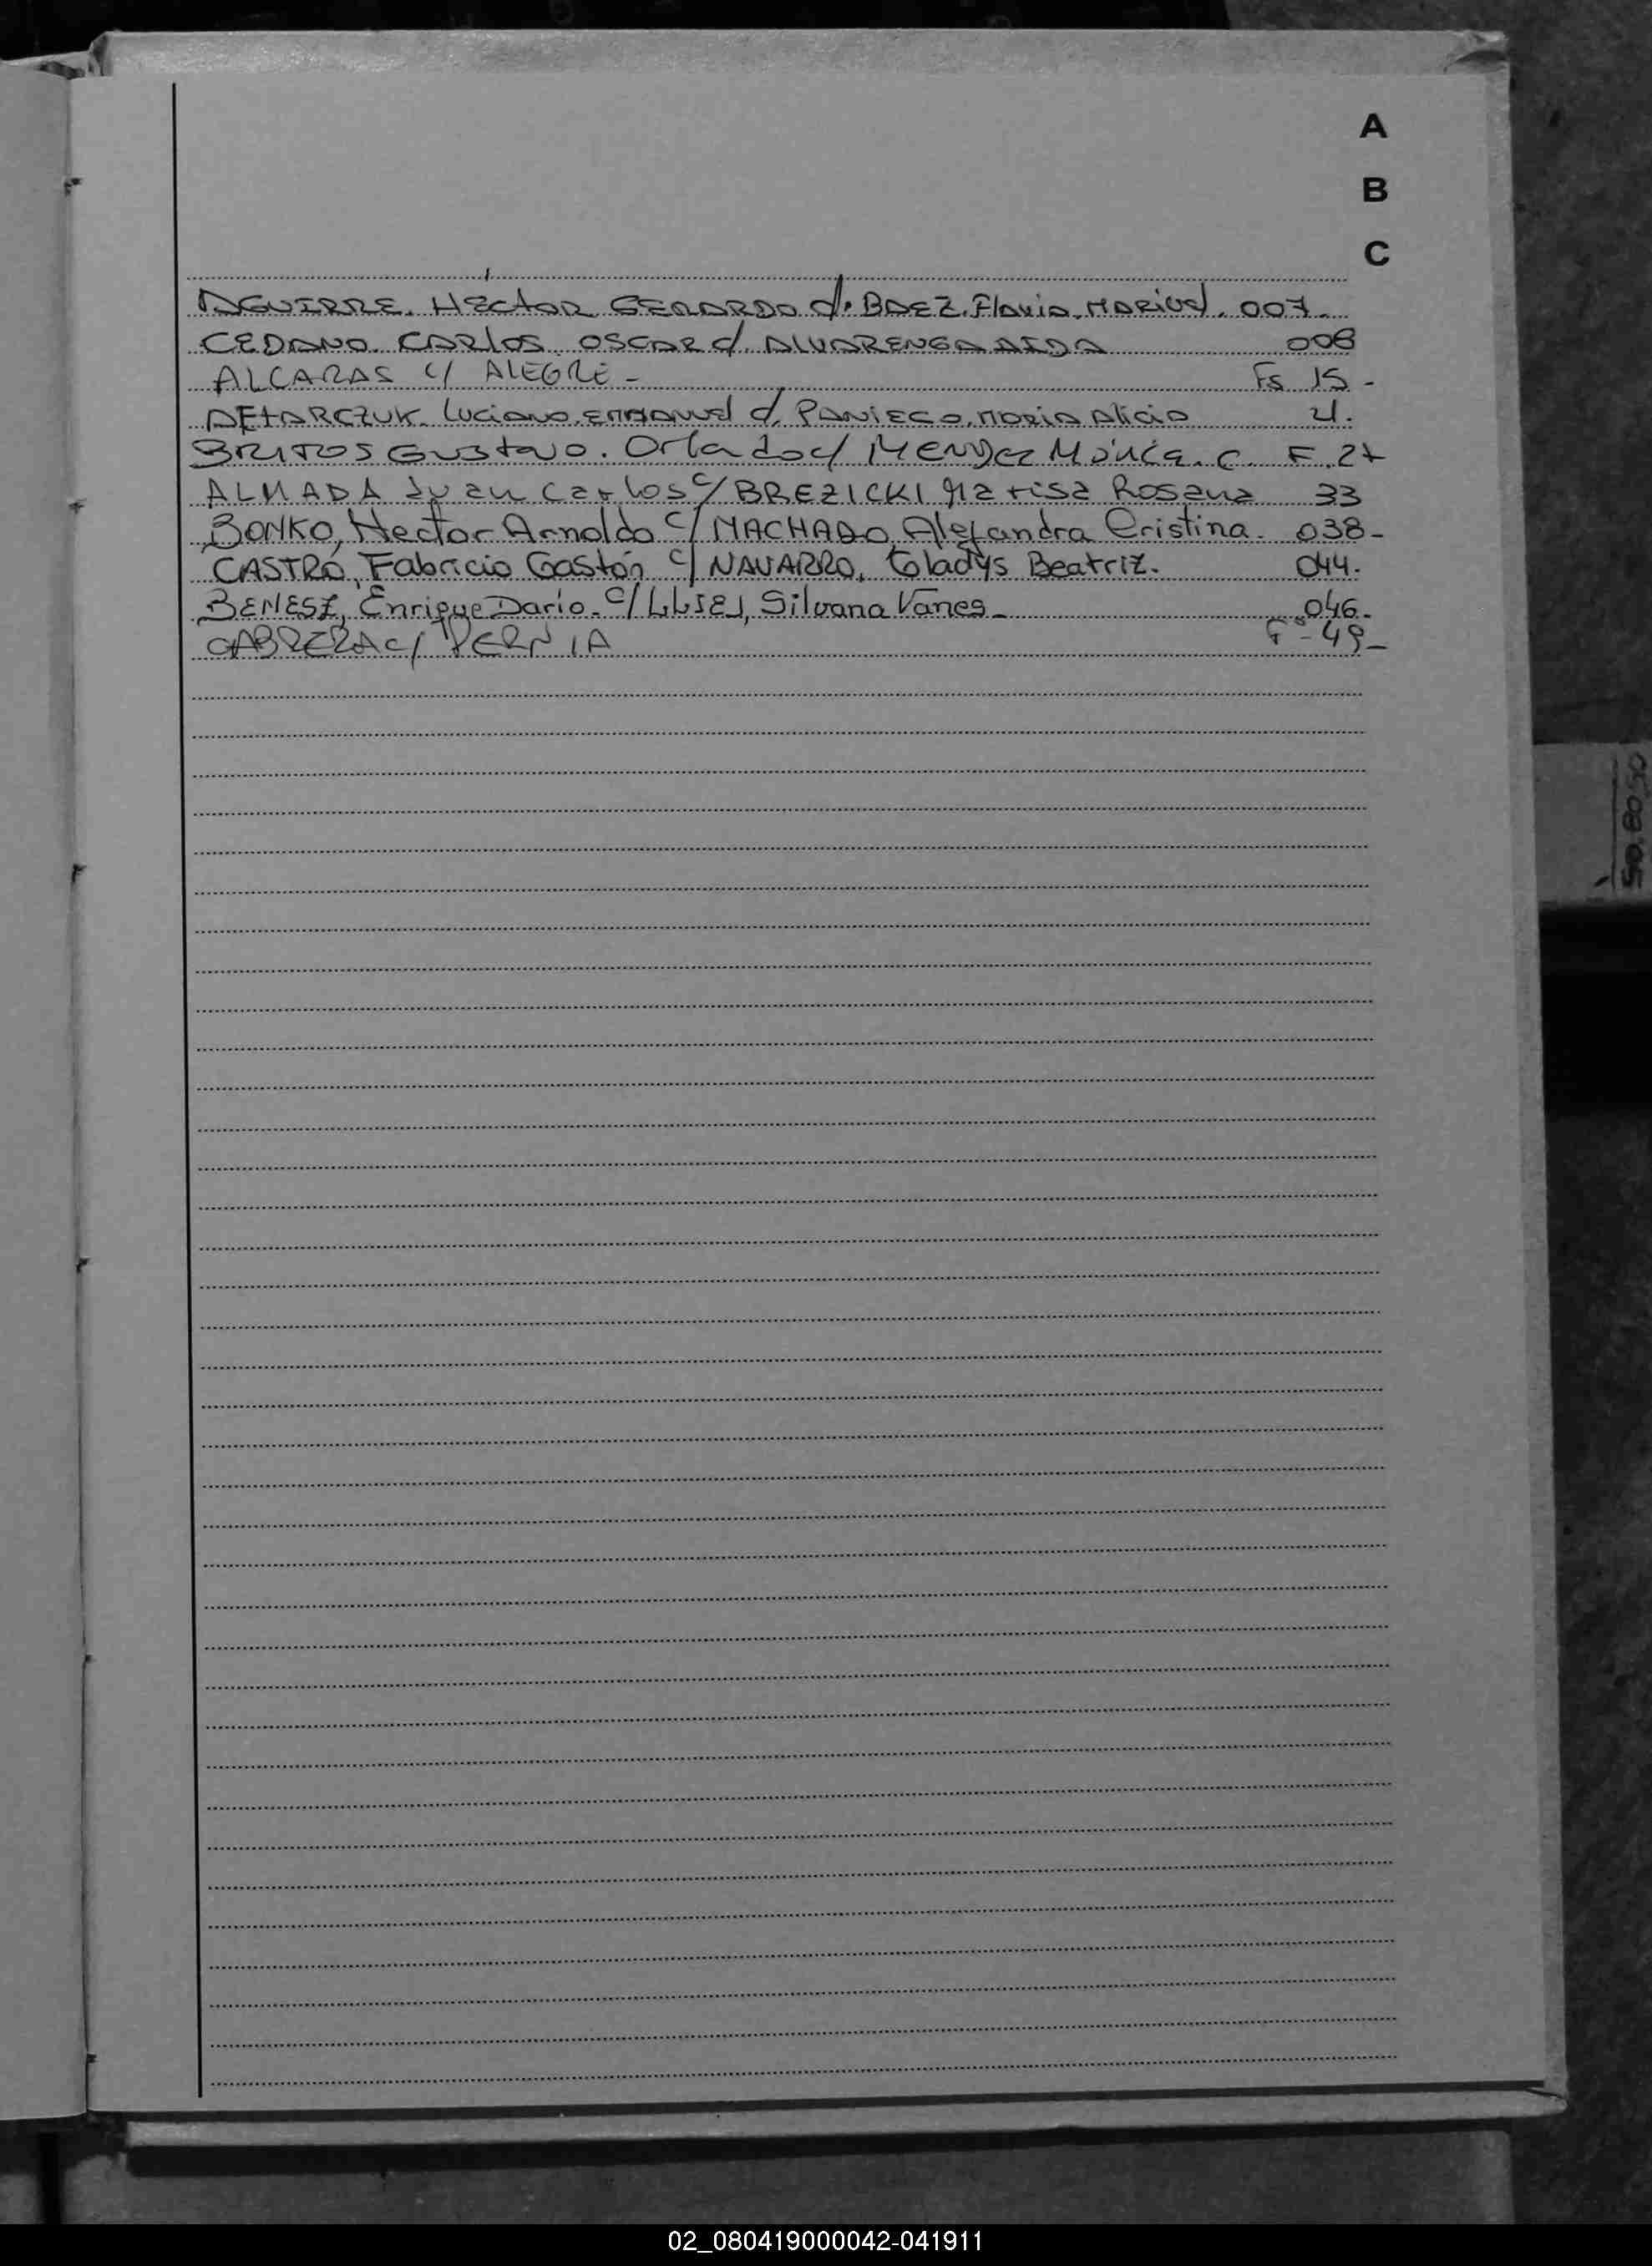 A
B
C
AGUIRRE. Héctor GERARDO c/. BAEZ, Flavia, MARICEL. 007.
CEDANO. CARLOS. OSCAR c/. ALVARENGA AIDA 008
ALCARAS c/ ALEGRE - Fs 15 -
Luciano, EMMANUEL c/, PANIEGO, MARIA Alicia 21.
BRITOS Gustavo. Orlado c/ MENDEZ Mónica. C. F. 27
ALMADA Juan Carlos c/ BREZICKI Marisa Rosana 33
BONKO, Hector Arnoldo c/ MACHADO, Alejandra Cristina. 038-
CASTRO, Fabricio Gastón c/ NAVARRO, Gladys Beatriz. 044.
Enrique Darío. c/ Silvana Vanes 046.
CABRERA c/ PERNIA Fº- 49-
02_080419000042-041911